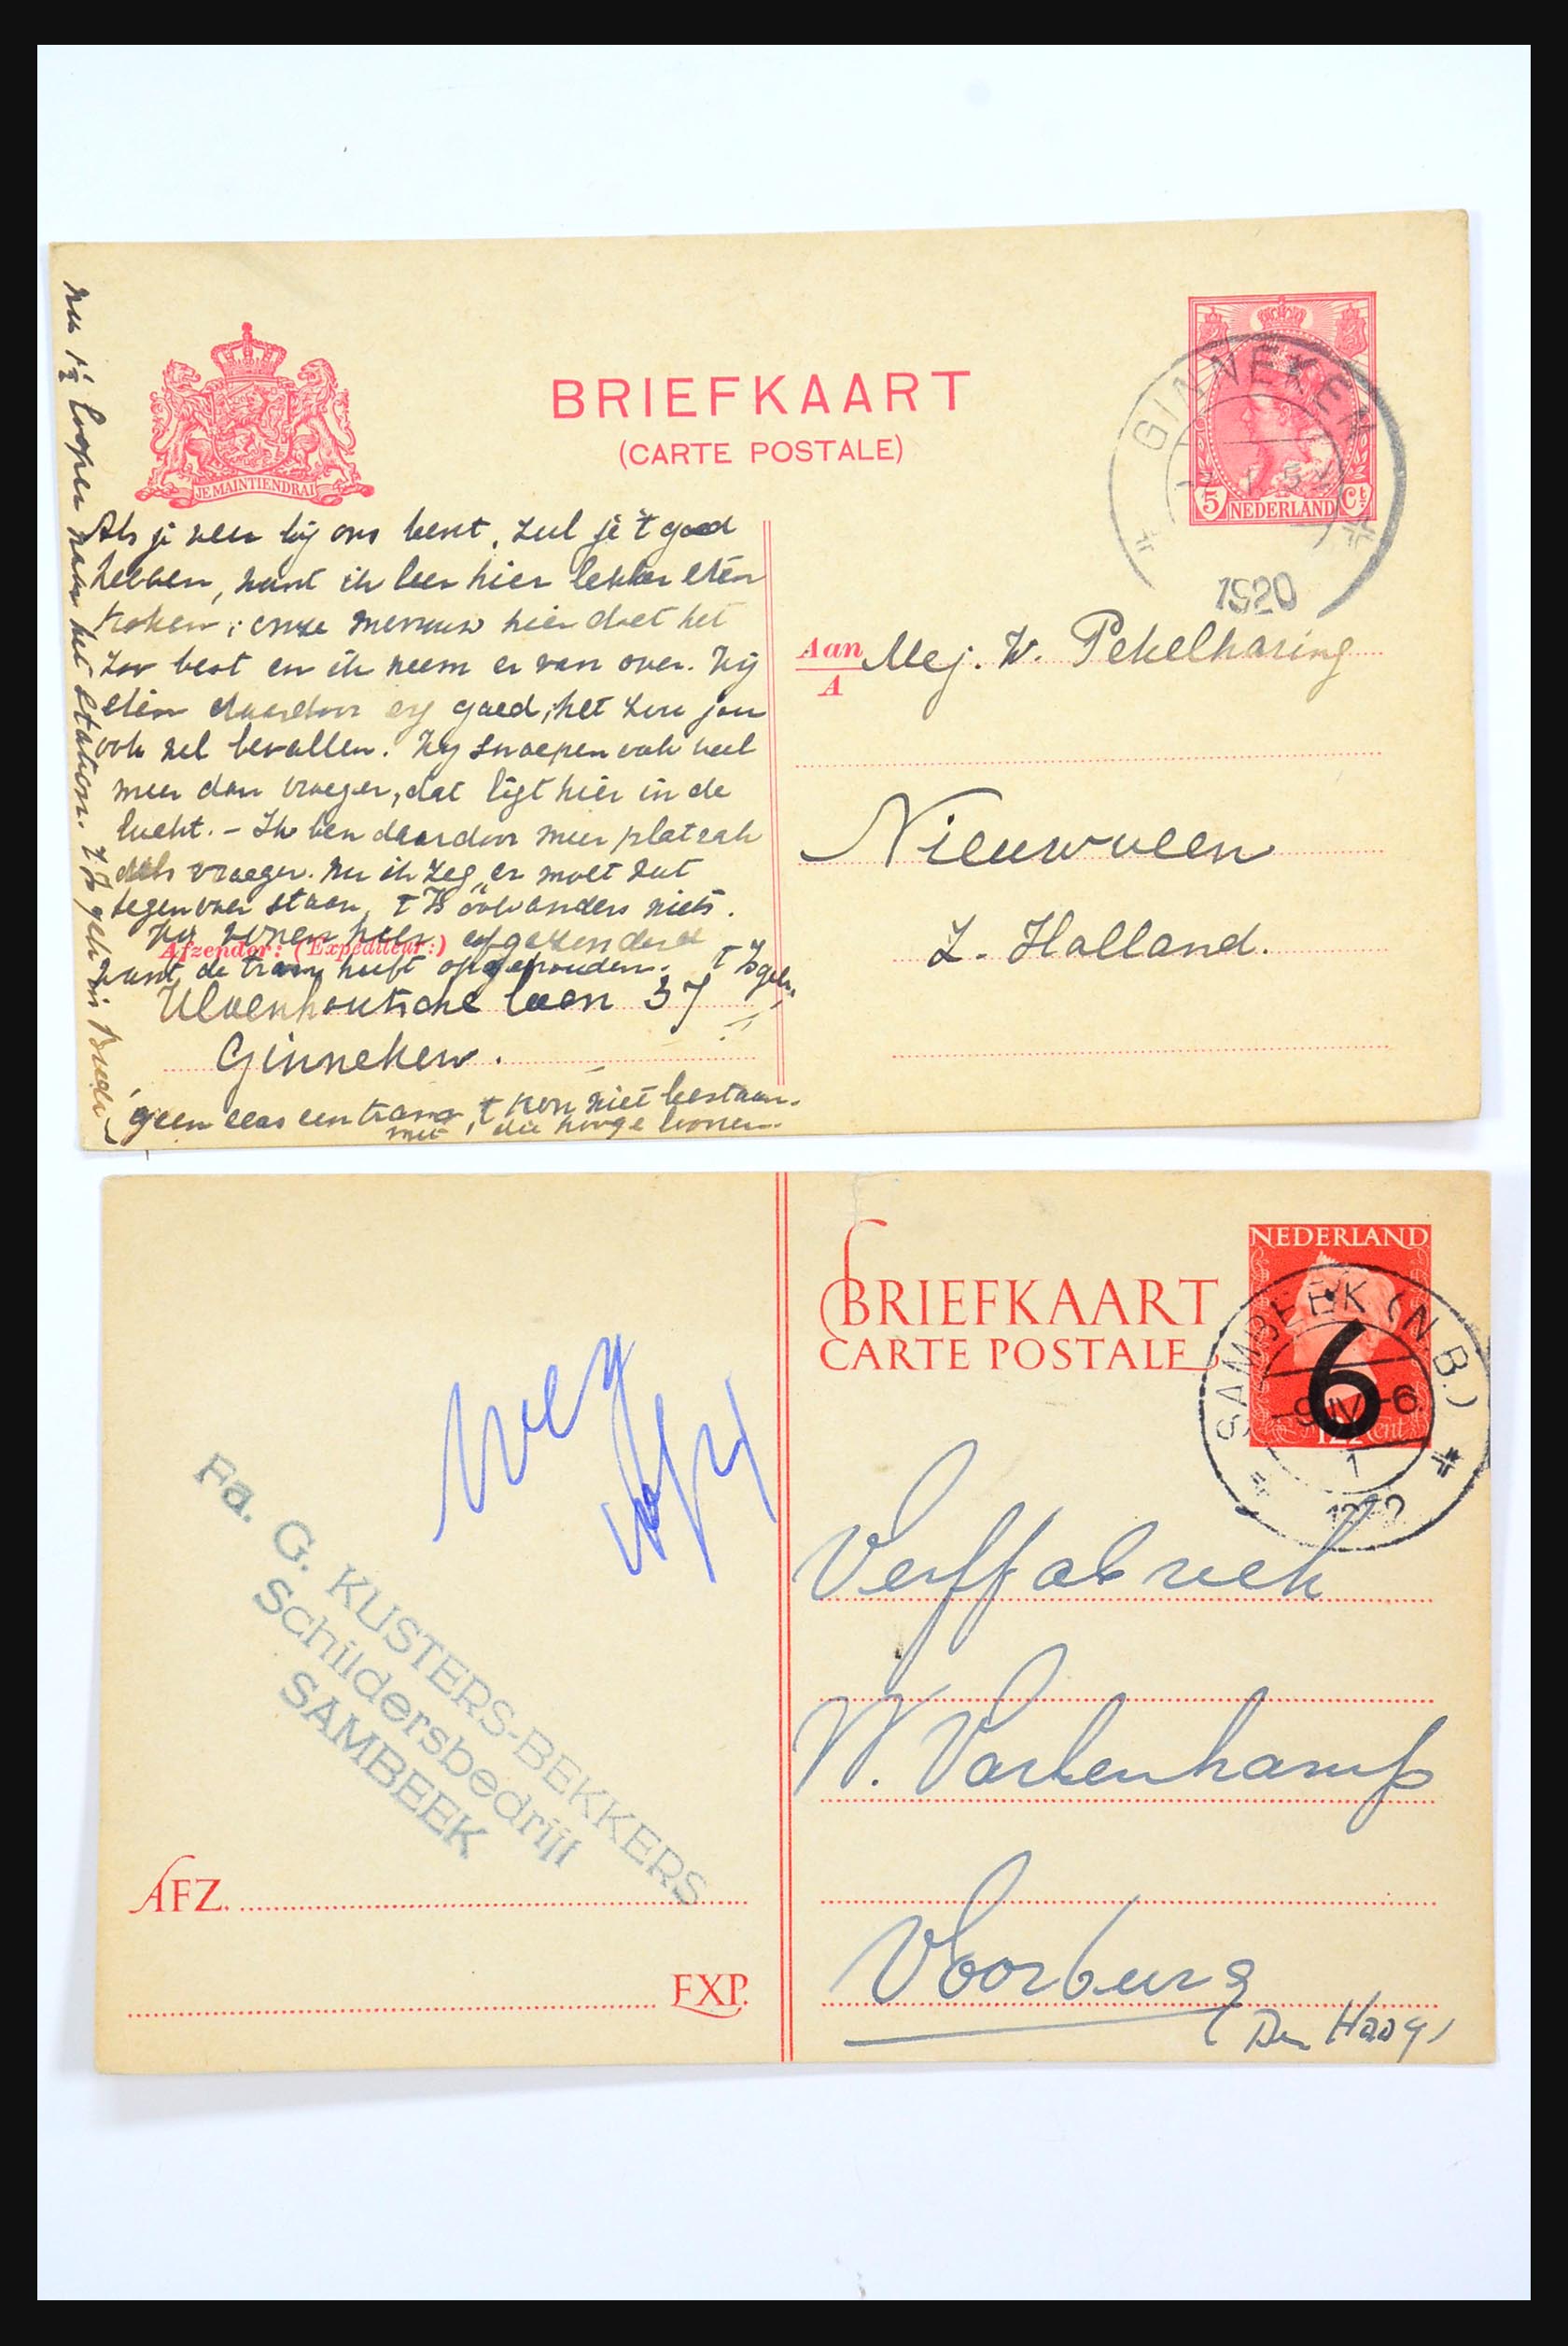 BRIEFKAART
(CARTE POSTALE)
JE MAINTIENDRAI
5 NEDERLAND Ct
GINNEKEN
1920
Als je weer bij ons bent, zul je 't goed
hebben, want ik leer hier lekker eten
koken; onze mevrouw hier doet het
zoo best en ik neem er van over. Wij
eten daardoor erg goed, het zou jou
ook wel bevallen. Wij snoepen ook veel
meer dan vroeger, dat ligt hier in de
lucht. – Ik ben daardoor meer platzak
dan vroeger. Nu ik zeg, er moet wat
tegenover staan, t Is anders niets.
Wij wonen hier afgezonderd
Afzender: (Expéditeur:)
want de tram heeft opgehouden. t Is
Ulvenhoutsche laan 37
Ginneken.
geen eens een tram, 't kon niet bestaan
met die hooge loonen.
nu 1½ loopen naar het station. t Is in Breda
Aan Mej. W. Pekelharing
A
Nieuwveen
Z. Holland.
BRIEFKAART
CARTE POSTALE
NEDERLAND
6
12½ cent
SAMBEEK (N.B.)
-9 IV -6
1
Fa. G. KUSTERS-BEKKERS
Schildersbedrijf
SAMBEEK
Verffabriek
W. Varkenkamp
Voorburg
Den Haag
AFZ.
EXP.